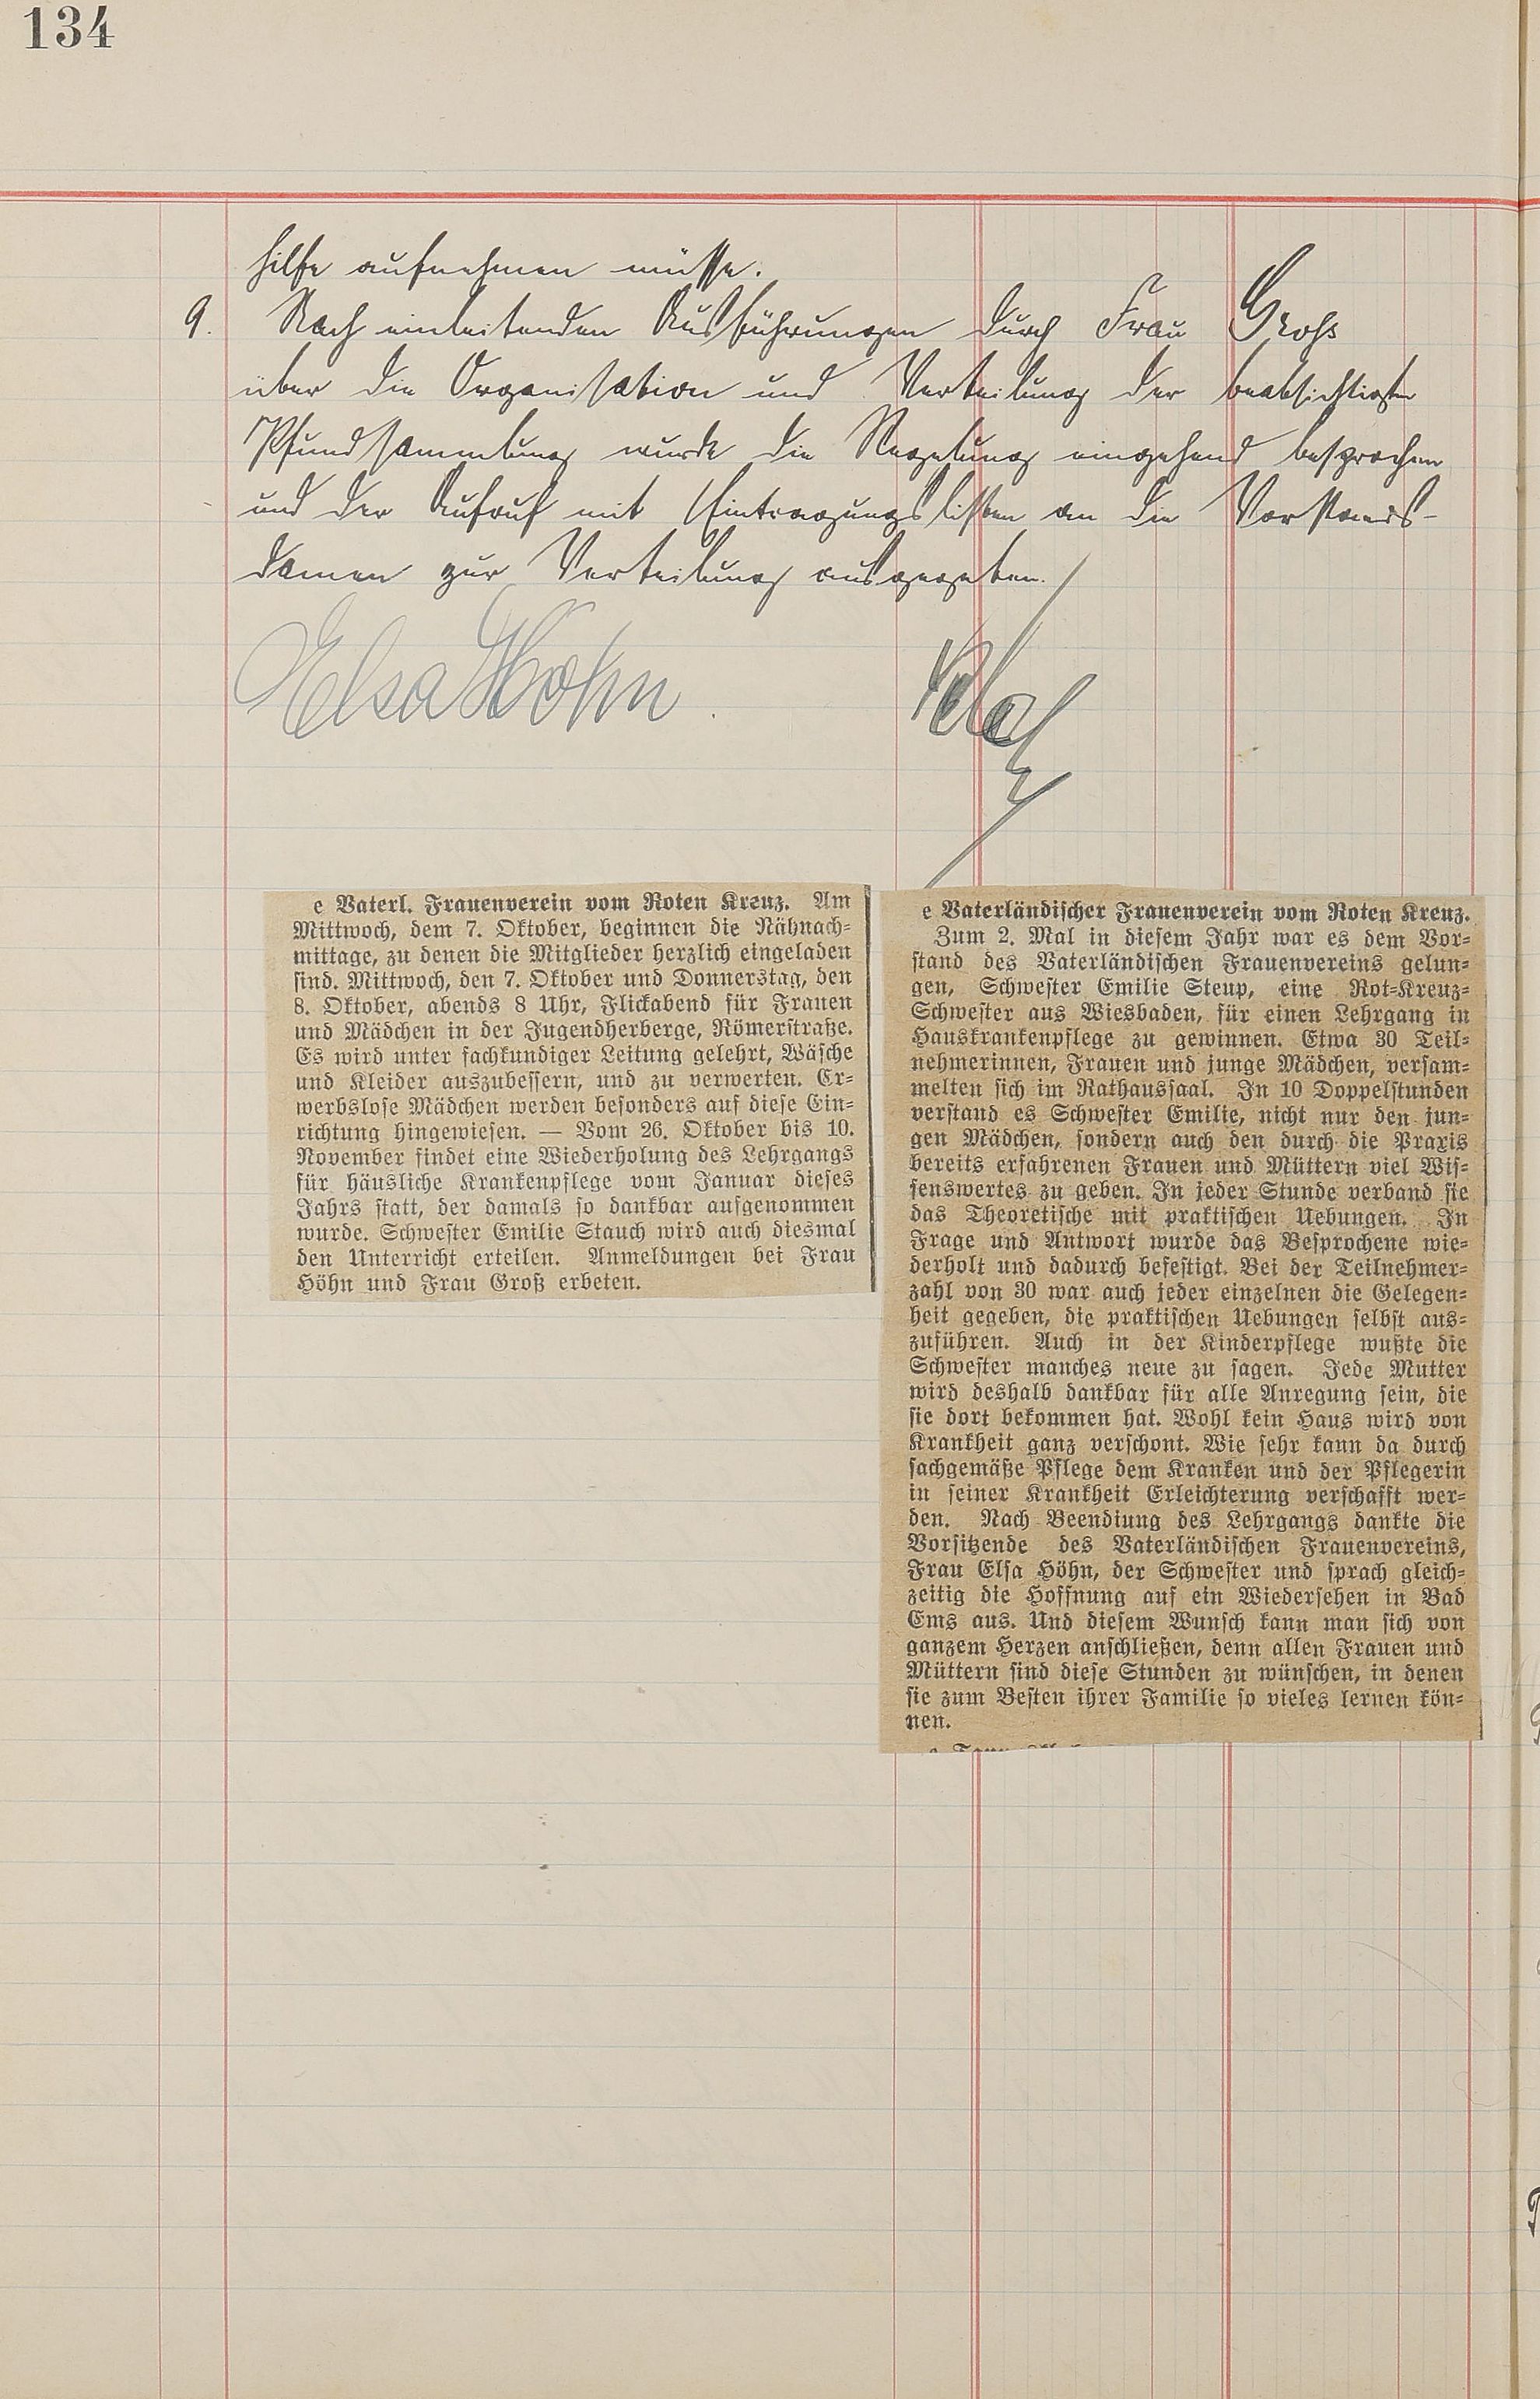 134
hilfe aufnehmen müsse.
9. Nach einleitenden Ausführungen durch Frau Groß
über die Organisation und Verteilung der beabsichtigten
Pfundsammlung wurde die Regelung eingehend besprochen
und der Aufruf mit Eintragungslisten an die Vorstands-
damen zur Verteilung ausgegeben.
Elsa Höhn
e Vaterl. Frauenverein vom Roten Kreuz. Am
Mittwoch, dem 7. Oktober, beginnen die Nähnach-
mittage, zu denen die Mitglieder herzlich eingeladen
sind. Mittwoch, den 7. Oktober und Donnerstag, den
8. Oktober, abends 8 Uhr, Flickabend für Frauen
und Mädchen in der Jugendherberge, Römerstraße.
Es wird unter fachkundiger Leitung gelehrt, Wäsche
und Kleider auszubessern, und zu verwerten. Er-
werbslose Mädchen werden besonders auf diese Ein-
richtung hingewiesen. — Vom 26. Oktober bis 10.
November findet eine Wiederholung des Lehrgangs
für häusliche Krankenpflege vom Januar dieses
Jahrs statt, der damals so dankbar aufgenommen
wurde. Schwester Emilie Stauch wird auch diesmal
den Unterricht erteilen. Anmeldungen bei Frau
Höhn und Frau Groß erbeten.
e Vaterländischer Frauenverein vom Roten Kreuz.
Zum 2. Mal in diesem Jahr war es dem Vor-
stand des Vaterländischen Frauenvereins gelun-
gen, Schwester Emilie Steup, eine Rot-Kreuz-
Schwester aus Wiesbaden, für einen Lehrgang in
Hauskrankenpflege zu gewinnen. Etwa 30 Teil-
nehmerinnen, Frauen und junge Mädchen, versam-
melten sich im Rathaussaal. In 10 Doppelstunden
verstand es Schwester Emilie, nicht nur den jun-
gen Mädchen, sondern auch den durch die Praxis
bereits erfahrenen Frauen und Müttern viel Wis-
senswertes zu geben. In jeder Stunde verband sie
das Theoretische mit praktischen Uebungen. In
Frage und Antwort wurde das Besprochene wie-
derholt und dadurch befestigt. Bei der Teilnehmer-
zahl von 30 war auch jeder einzelnen die Gelegen-
heit gegeben, die praktischen Uebungen selbst aus-
zuführen. Auch in der Kinderpflege wußte die
Schwester manches neue zu sagen. Jede Mutter
wird deshalb dankbar für alle Anregung sein, die
sie dort bekommen hat. Wohl kein Haus wird von
Krankheit ganz verschont. Wie sehr kann da durch
sachgemäße Pflege dem Kranken und der Pflegerin
in seiner Krankheit Erleichterung verschafft wer-
den. Nach Beendiung des Lehrgangs dankte die
Vorsitzende des Vaterländischen Frauenvereins,
Frau Elsa Höhn, der Schwester und sprach gleich-
zeitig die Hoffnung auf ein Wiedersehen in Bad
Ems aus. Und diesem Wunsch kann man sich von
ganzem Herzen anschließen, denn allen Frauen und
Müttern sind diese Stunden zu wünschen, in denen
sie zum Besten ihrer Familie so vieles lernen kön-
nen.